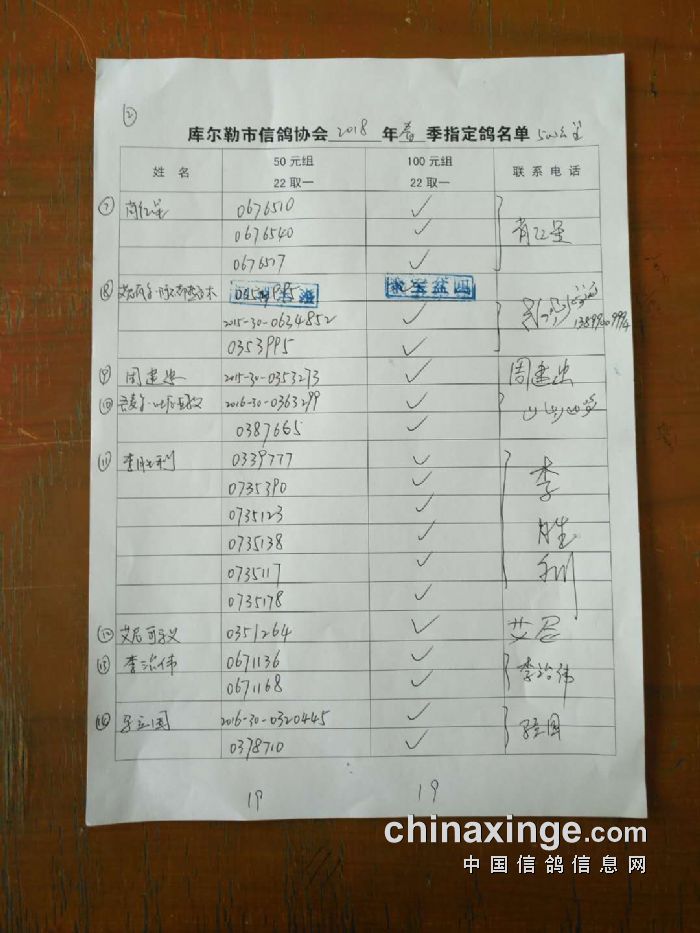 ②
库尔勒市信鸽协会 2018 年 春 季指定鸽名单 500公里
姓 名 50 元组 22 取一 100 元组 22 取一 联 系 电 话
⑦ 肖红星 0676510 ✓ 肖红星
0676540 ✓
0676517 ✓
⑧
2015-30-0634852 ✓
0353995 ✓
⑨ 周建忠 2015-30-0353273 ✓ 周建忠
⑩ 2016-30-0363299 ✓
0387665 ✓
⑪ 李胜利 0339777 ✓ 李胜利
0735390 ✓
0735123 ✓
0735138 ✓
0735117 ✓
0735178 ✓
⑫ 艾尼 0351264 ✓ 艾尼
⑬ 李治伟 0671136 ✓ 李治伟
0671168 ✓
⑭ 2016-30-0320445 ✓
0378710 ✓
19 19
chinaxinge.com
中国信鸽信息网